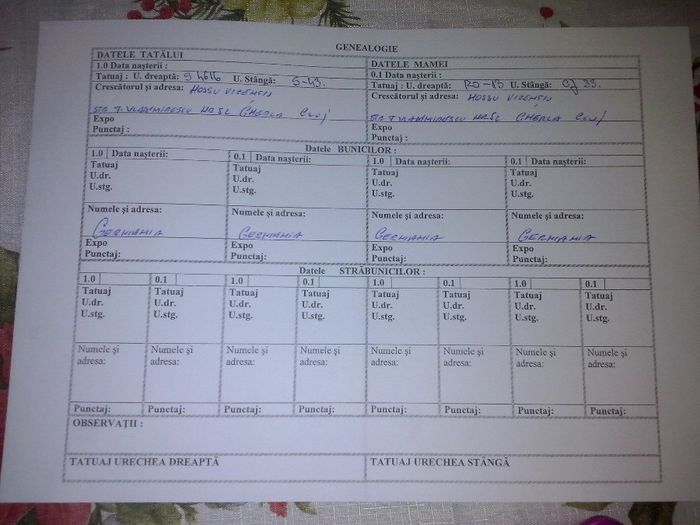 GENEALOGIE
DATELE TATĂLUI
1.0 Data nașterii :
Tatuaj : U. dreaptă: S 4616 U. Stângă: S-43.
Crescătorul și adresa: HOSSU VICENSIU
STR T. VLADIMIRESCU NR 51 GHERLA CLUJ
Expo
Punctaj :
DATELE MAMEI
0.1 Data nașterii:
Tatuaj : U. dreaptă: RO-13 U. Stângă: CJ 33.
Crescătorul și adresa: HOSSU VICENSIU
STR T VLADIMIRESCU NR 51 GHERLA CLUJ
Expo
Punctaj :
Datele BUNICILOR :
1.0 Data nașterii: 0.1 Data nașterii: 1.0 Data nașterii: 0.1 Data nașterii:
Tatuaj Tatuaj Tatuaj Tatuaj
U.dr. U.dr. U.dr. U.dr.
U.stg. U.stg. U.stg. U.stg.
Numele și adresa: Numele și adresa: Numele și adresa: Numele și adresa:
GERMANIA GERMANIA GERMANIA GERMANIA
Expo Expo Expo Expo
Punctaj: Punctaj: Punctaj: Punctaj:
Datele STRĂBUNICILOR :
1.0 0.1 1.0 0.1 1.0 0.1 1.0 0.1
Tatuaj Tatuaj Tatuaj Tatuaj Tatuaj Tatuaj Tatuaj Tatuaj
U.dr. U.dr. U.dr. U.dr. U.dr. U.dr. U.dr. U.dr.
U.stg. U.stg. U.stg. U.stg. U.stg. U.stg. U.stg. U.stg.
Numele și Numele și Numele și Numele și Numele și Numele și Numele și Numele și
adresa: adresa: adresa: adresa: adresa: adresa: adresa: adresa:
Punctaj: Punctaj: Punctaj: Punctaj: Punctaj: Punctaj: Punctaj: Punctaj:
OBSERVAȚII :
TATUAJ URECHEA DREAPTĂ TATUAJ URECHEA STÂNGĂ